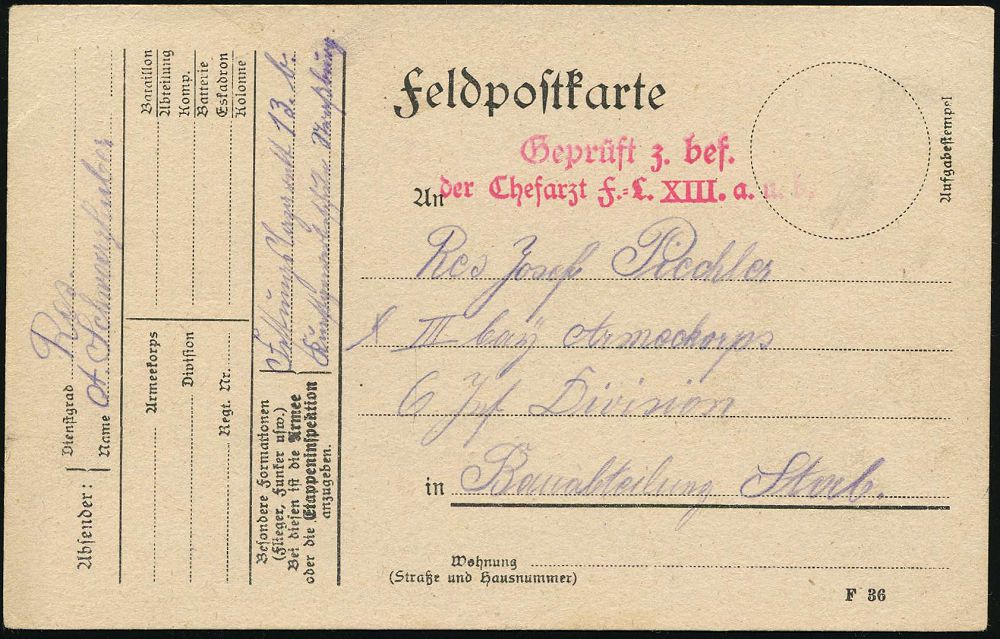 Feldpostkarte
Geprüft z. bef.
der Chefarzt F.=L. XIII. a. u. b.
An
Res Josef Piechler
III bay Armeekorps
6 Inf Division
in Bauabteilung Storb.
Wohnung
(Straße und Hausnummer)
F 36
Aufgabestempel
Absender:
Dienstgrad Res.
Name A Schwarzhuber
Bataillon
Abteilung
Komp.
Batterie
Eskadron
Kolonne
Armeekorps
Division
Regt. Nr.
Besondere Formationen
(Flieger, Funker usw.)
Bei diesen ist die Armee
oder die Etappeninspektion
anzugeben.
Festungs Lazarett 13. b.
Straßburg